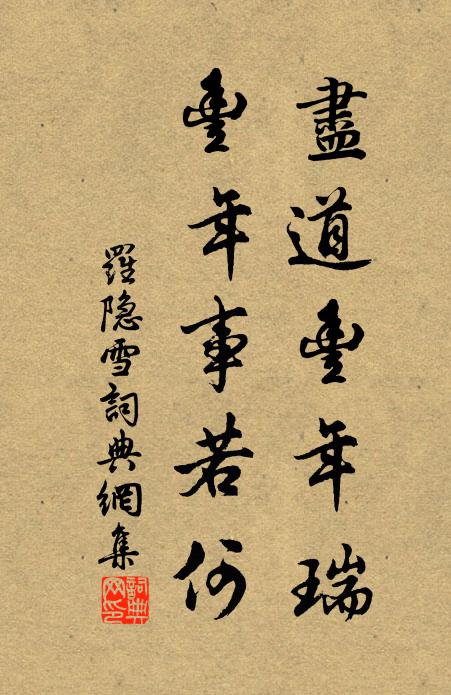 盡道豐年瑞
豐年事若何
羅隐雪詞典網集
詞典网印